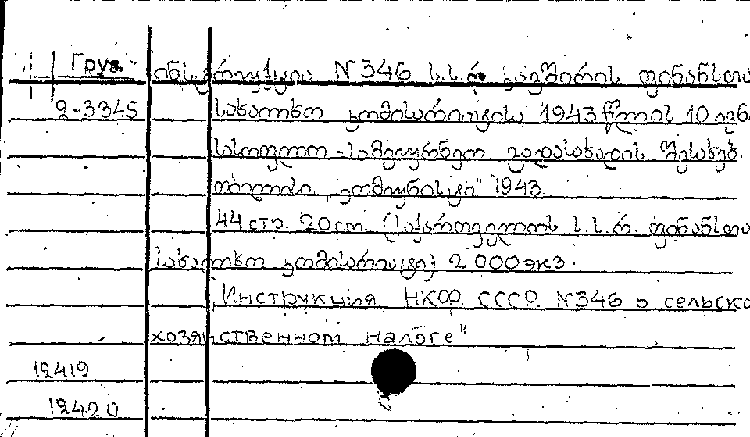 Груз. ინსტრუქცია N 346 ს.ს.რ. კავშირის ფინანსთა
2-3345 სახალხო კომისარიატისა 1943 წლის 10 ივნ.
სასოფლო-სამეურნეო გადასახადის შესახებ.
თბილისი „კომუნისტი" 1943
44 стр. 20 см. (საქართველოს ს.ს.რ. ფინანსთა
სახალხო კომისარიატი) 2 000 экз.
„Инструкция НКФ СССР N 346 о сельско
хозяйственном налоге"
12419
12420